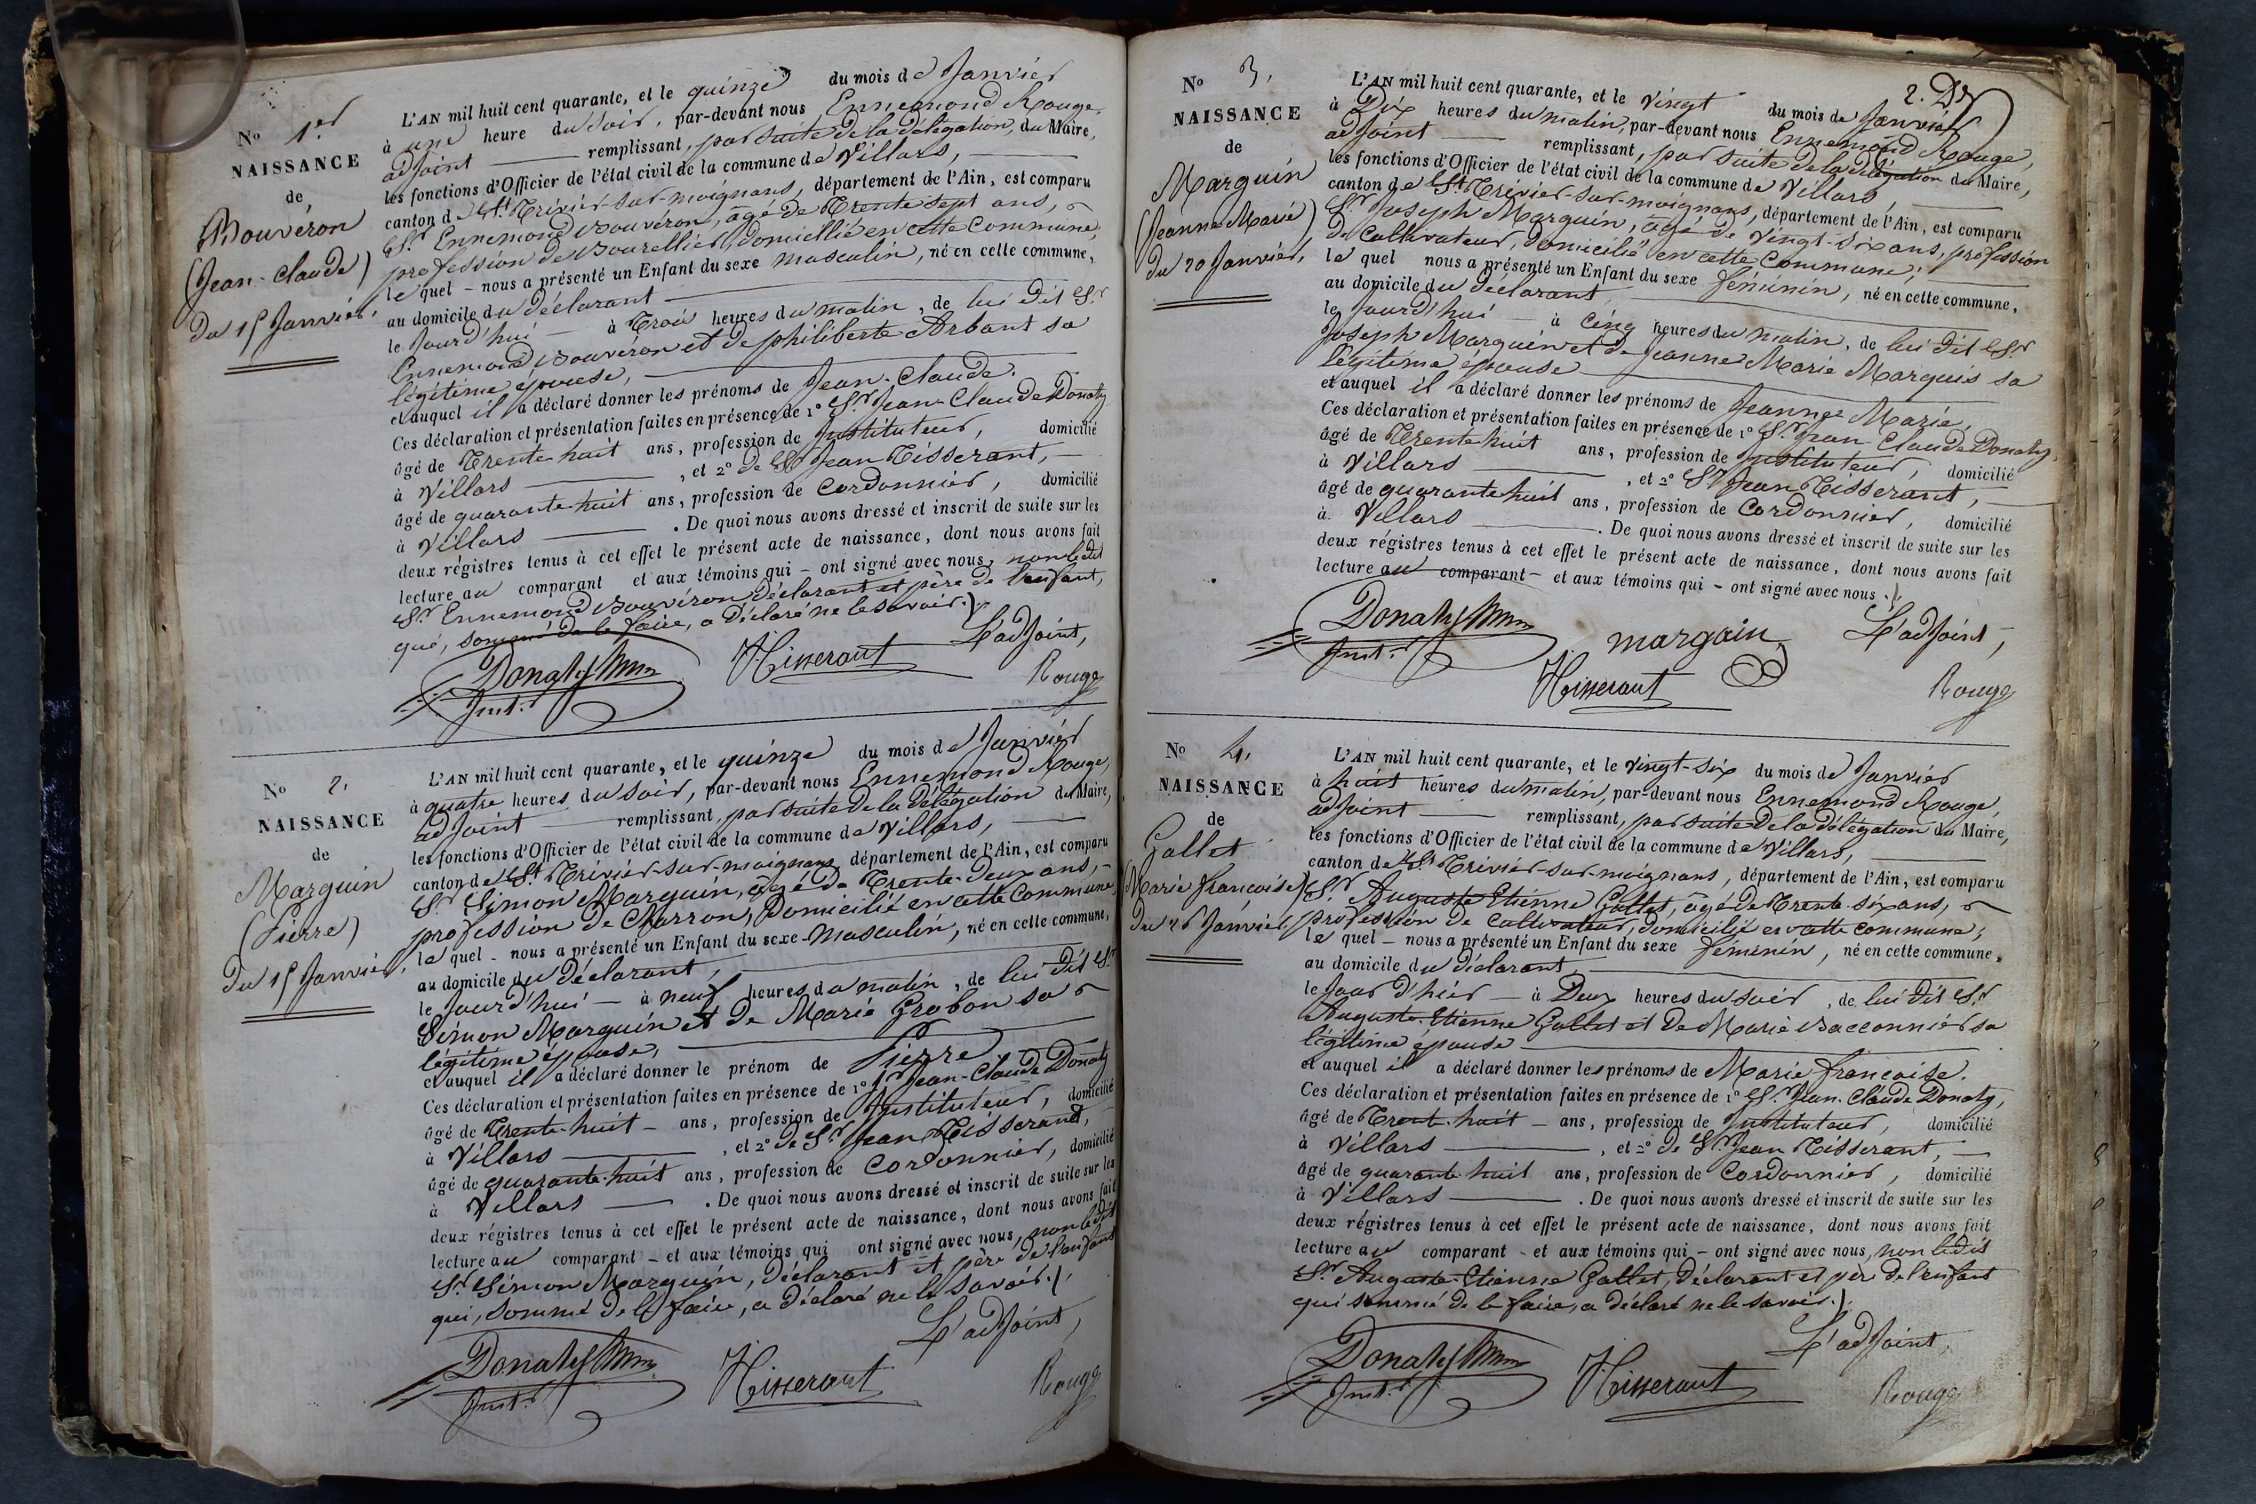 No 1er
NAISSANCE
de
Bouvéron
(Jean-Claude)
du 15 Janvier.
L'AN mil huit cent quarante, et le quinze du mois de Janvier
à une heure du soir, par-devant nous Ennemond Rouge,
adjoint remplissant, par suite de la délégation, du Maire,
les fonctions d'Officier de l'état civil de la commune de Villars,
canton de St. Trivier-sur-moignans, département de l'Ain, est comparu
Sr. Ennemond Bouvéron, âgé de Trente sept ans,
profession de Bourellier, domicilié en cette commune,
le quel - nous a présenté un Enfant du sexe masculin, né en cette commune,
au domicile du déclarant
le jourd'hui à Trois heures du matin, de lui dit Sr.
Ennemond Bouvéron et de philiberte Arbant sa
légitime épouse,
et auquel il a déclaré donner les prénoms de Jean-Claude.
Ces déclaration et présentation faites en présence de 1° Sr. Jean-Claude Donaty
âgé de Trente-huit ans, profession de Instituteur, domicilié
à Villars, et 2° de Sr. Jean Tisserant,
âgé de quarante-huit ans, profession de Cordonnier, domicilié
à Villars. De quoi nous avons dressé et inscrit de suite sur les
deux régistres tenus à cet effet le présent acte de naissance, dont nous avons fait
lecture au comparant et aux témoins qui - ont signé avec nous, non ledit
Sr. Ennemond Bouvéron, déclarant et père de l'enfant,
qui, sommé de le faire, a déclaré ne le savoir.
Donaty
Inst.r
Tisserant
L'adjoint,
Rouge
No 2.
NAISSANCE
de
Marguin
(Pierre)
du 15 Janvier.
L'AN mil huit cent quarante, et le quinze du mois de Janvier
à quatre heures du soir, par-devant nous Ennemond Rouge,
adjoint remplissant, par suite de la délégation du Maire,
les fonctions d'Officier de l'état civil de la commune de Villars,
canton de St. Trivier-sur-moignans, département de l'Ain, est comparu
Sr. Simon Marguin, âgé de Trente-deux ans,
profession de Charron, Domicilié en cette commune
le quel - nous a présenté un Enfant du sexe masculin, né en cette commune,
au domicile du déclarant,
le jourd'hui - à neuf heures du matin, de lui dit Sr.
Simon Marguin et de Marie Grobon sa
légitime épouse,
et auquel il a déclaré donner le prénom de Pierre
Ces déclaration et présentation faites en présence de 1° Sr. Jean-Claude Donaty
âgé de Trente-huit - ans, profession de Instituteur, domicilié
à Villars, et 2° de Sr. Jean Tisserand,
âgé de quarante-huit ans, profession de Cordonnier, domicilié
à Villars. De quoi nous avons dressé et inscrit de suite sur les
deux régistres tenus à cet effet le présent acte de naissance, dont nous avons fait
lecture au comparant - et aux témoins qui ont signé avec nous, non ledit
Sr. Simon Marguin, déclarant et père de l'enfant
qui, sommé de le faire, a déclaré ne le savoir.
Donaty
Inst.r
Tisserant
L'adjoint,
Rouge
2.
No 3.
NAISSANCE
de
Marguin
(Jeanne Marie)
du 20 Janvier.
L'AN mil huit cent quarante, et le vingt du mois de Janvier
à Dix heures du matin, par-devant nous Ennemond Rouge,
adjoint remplissant, par suite de la délégation du Maire,
les fonctions d'Officier de l'état civil de la commune de Villars,
canton de St. Trivier-sur-moignans, département de l'Ain, est comparu
Sr. Joseph Marguin, âgé de vingt-six ans, profession
de Cultivateur, domicilié en cette commune,
le quel nous a présenté un Enfant du sexe féminin, né en cette commune,
au domicile du déclarant,
le jourd'hui - à cinq heures du matin, de lui dit Sr.
Joseph Marguin et de Jeanne Marie Marquis sa
légitime épouse
et auquel il a déclaré donner les prénoms de Jeanne Marie,
Ces déclaration et présentation faites en présence de 1° Sr. Jean Claude Donaty,
âgé de Trente huit ans, profession de Instituteur, domicilié
à Villars, et 2° Sr. Jean Tisserant,
âgé de quarante huit ans, profession de Cordonnier, domicilié
à Villars. De quoi nous avons dressé et inscrit de suite sur les
deux régistres tenus à cet effet le présent acte de naissance, dont nous avons fait
lecture au comparant - et aux témoins qui - ont signé avec nous.
Donaty
Inst.r
margain
Tisserant
L'adjoint,
Rouge
No 4.
NAISSANCE
de
Gallet
(Marie françoise)
du 26 Janvier,
L'AN mil huit cent quarante, et le vingt-six du mois de Janvier
à huit heures du matin, par-devant nous Ennemond Rouge,
adjoint remplissant, par suite de la délégation du Maire,
les fonctions d'Officier de l'état civil de la commune de Villars,
canton de St. Trivier-sur-moignans, département de l'Ain, est comparu
Sr. Auguste Etienne Gallet, âgé de Trente-six ans,
profession de Cultivateur, domicilié en cette commune,
le quel - nous a présenté un Enfant du sexe féminin, né en cette commune,
au domicile du déclarant
le jour d'hier - à Deux heures du soir, de lui dit Sr.
Auguste-Etienne Gallet et de Marie Bacconnier sa
légitime épouse
et auquel il a déclaré donner les prénoms de Marie françoise.
Ces déclaration et présentation faites en présence de 1° Sr. Jean-Claude Donaty,
âgé de Trente-huit - ans, profession de Instituteur, domicilié
à Villars, et 2° de Sr. Jean Tisserant,
âgé de quarante-huit ans, profession de Cordonnier, domicilié
à Villars. De quoi nous avons dressé et inscrit de suite sur les
deux régistres tenus à cet effet le présent acte de naissance, dont nous avons fait
lecture au comparant - et aux témoins qui - ont signé avec nous, non ledit
Sr. Auguste-Etienne Gallet, déclarant et père de l'enfant
qui sommé de le faire, a déclaré ne le savoir.
Donaty
Inst.r
Tisserant
L'adjoint,
Rouge